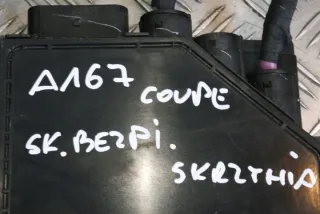 A167 COUPE
SK.BEZPI.
SKRZYNIA